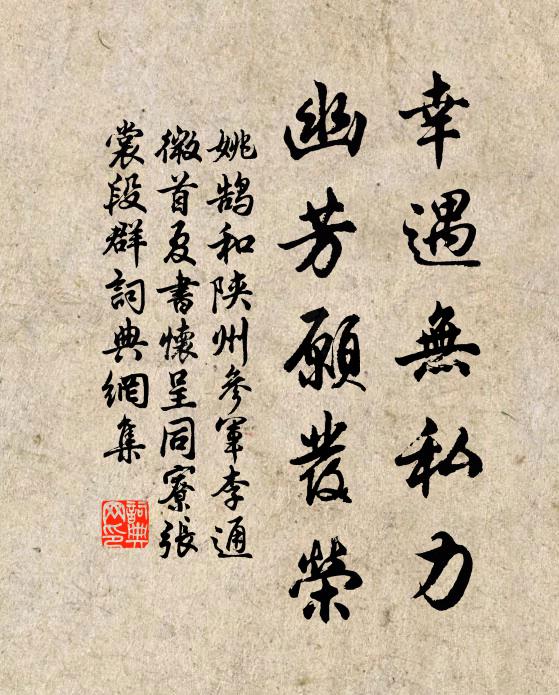 幸遇無私力
幽芳願發榮
姚鹄和陕州參軍李通
微首夏書懷呈同寮張
裳段群詞典網集
詞典
网印